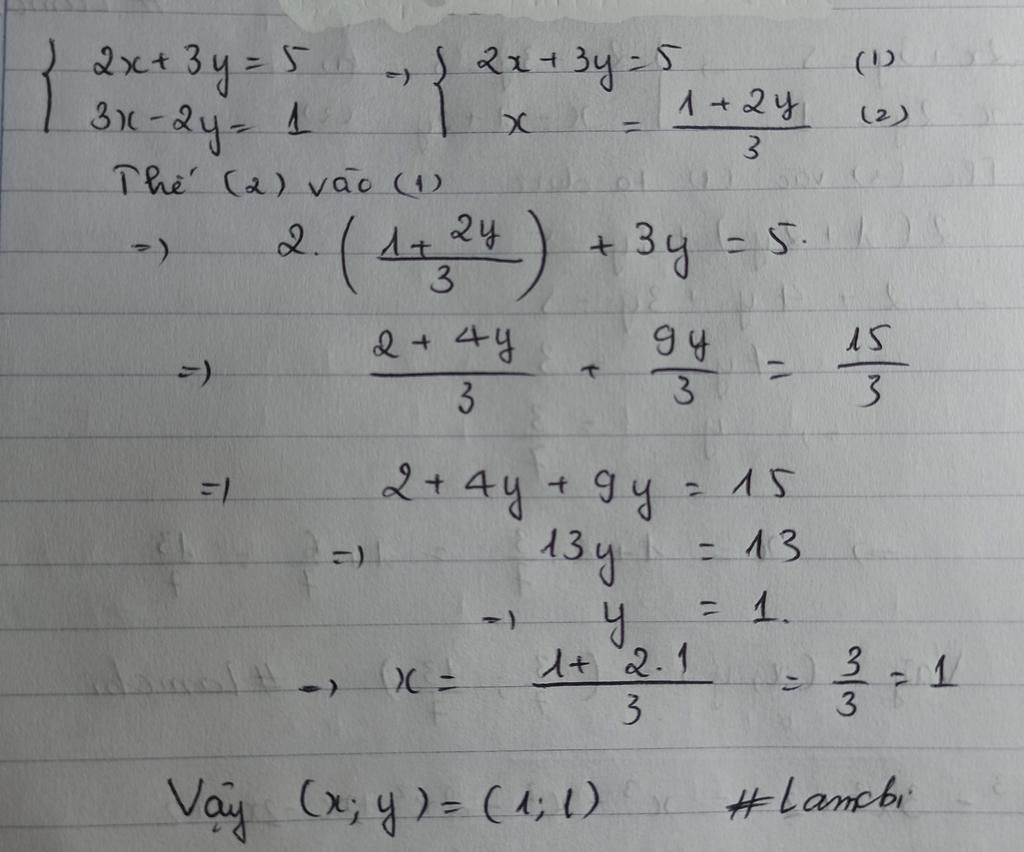 { 2x + 3y = 5 => { 2x + 3y = 5 (1)
3x - 2y = 1 x = (1 + 2y)/3 (2)
Thế (2) vào (1)
=> 2. ((1 + 2y)/3) + 3y = 5.
=> (2 + 4y)/3 + 9y/3 = 15/3
=> 2 + 4y + 9y = 15
=> 13y = 13
=> y = 1.
=> x = (1 + 2.1)/3 = 3/3 = 1
Vậy (x; y) = (1; 1) #Lamcbi